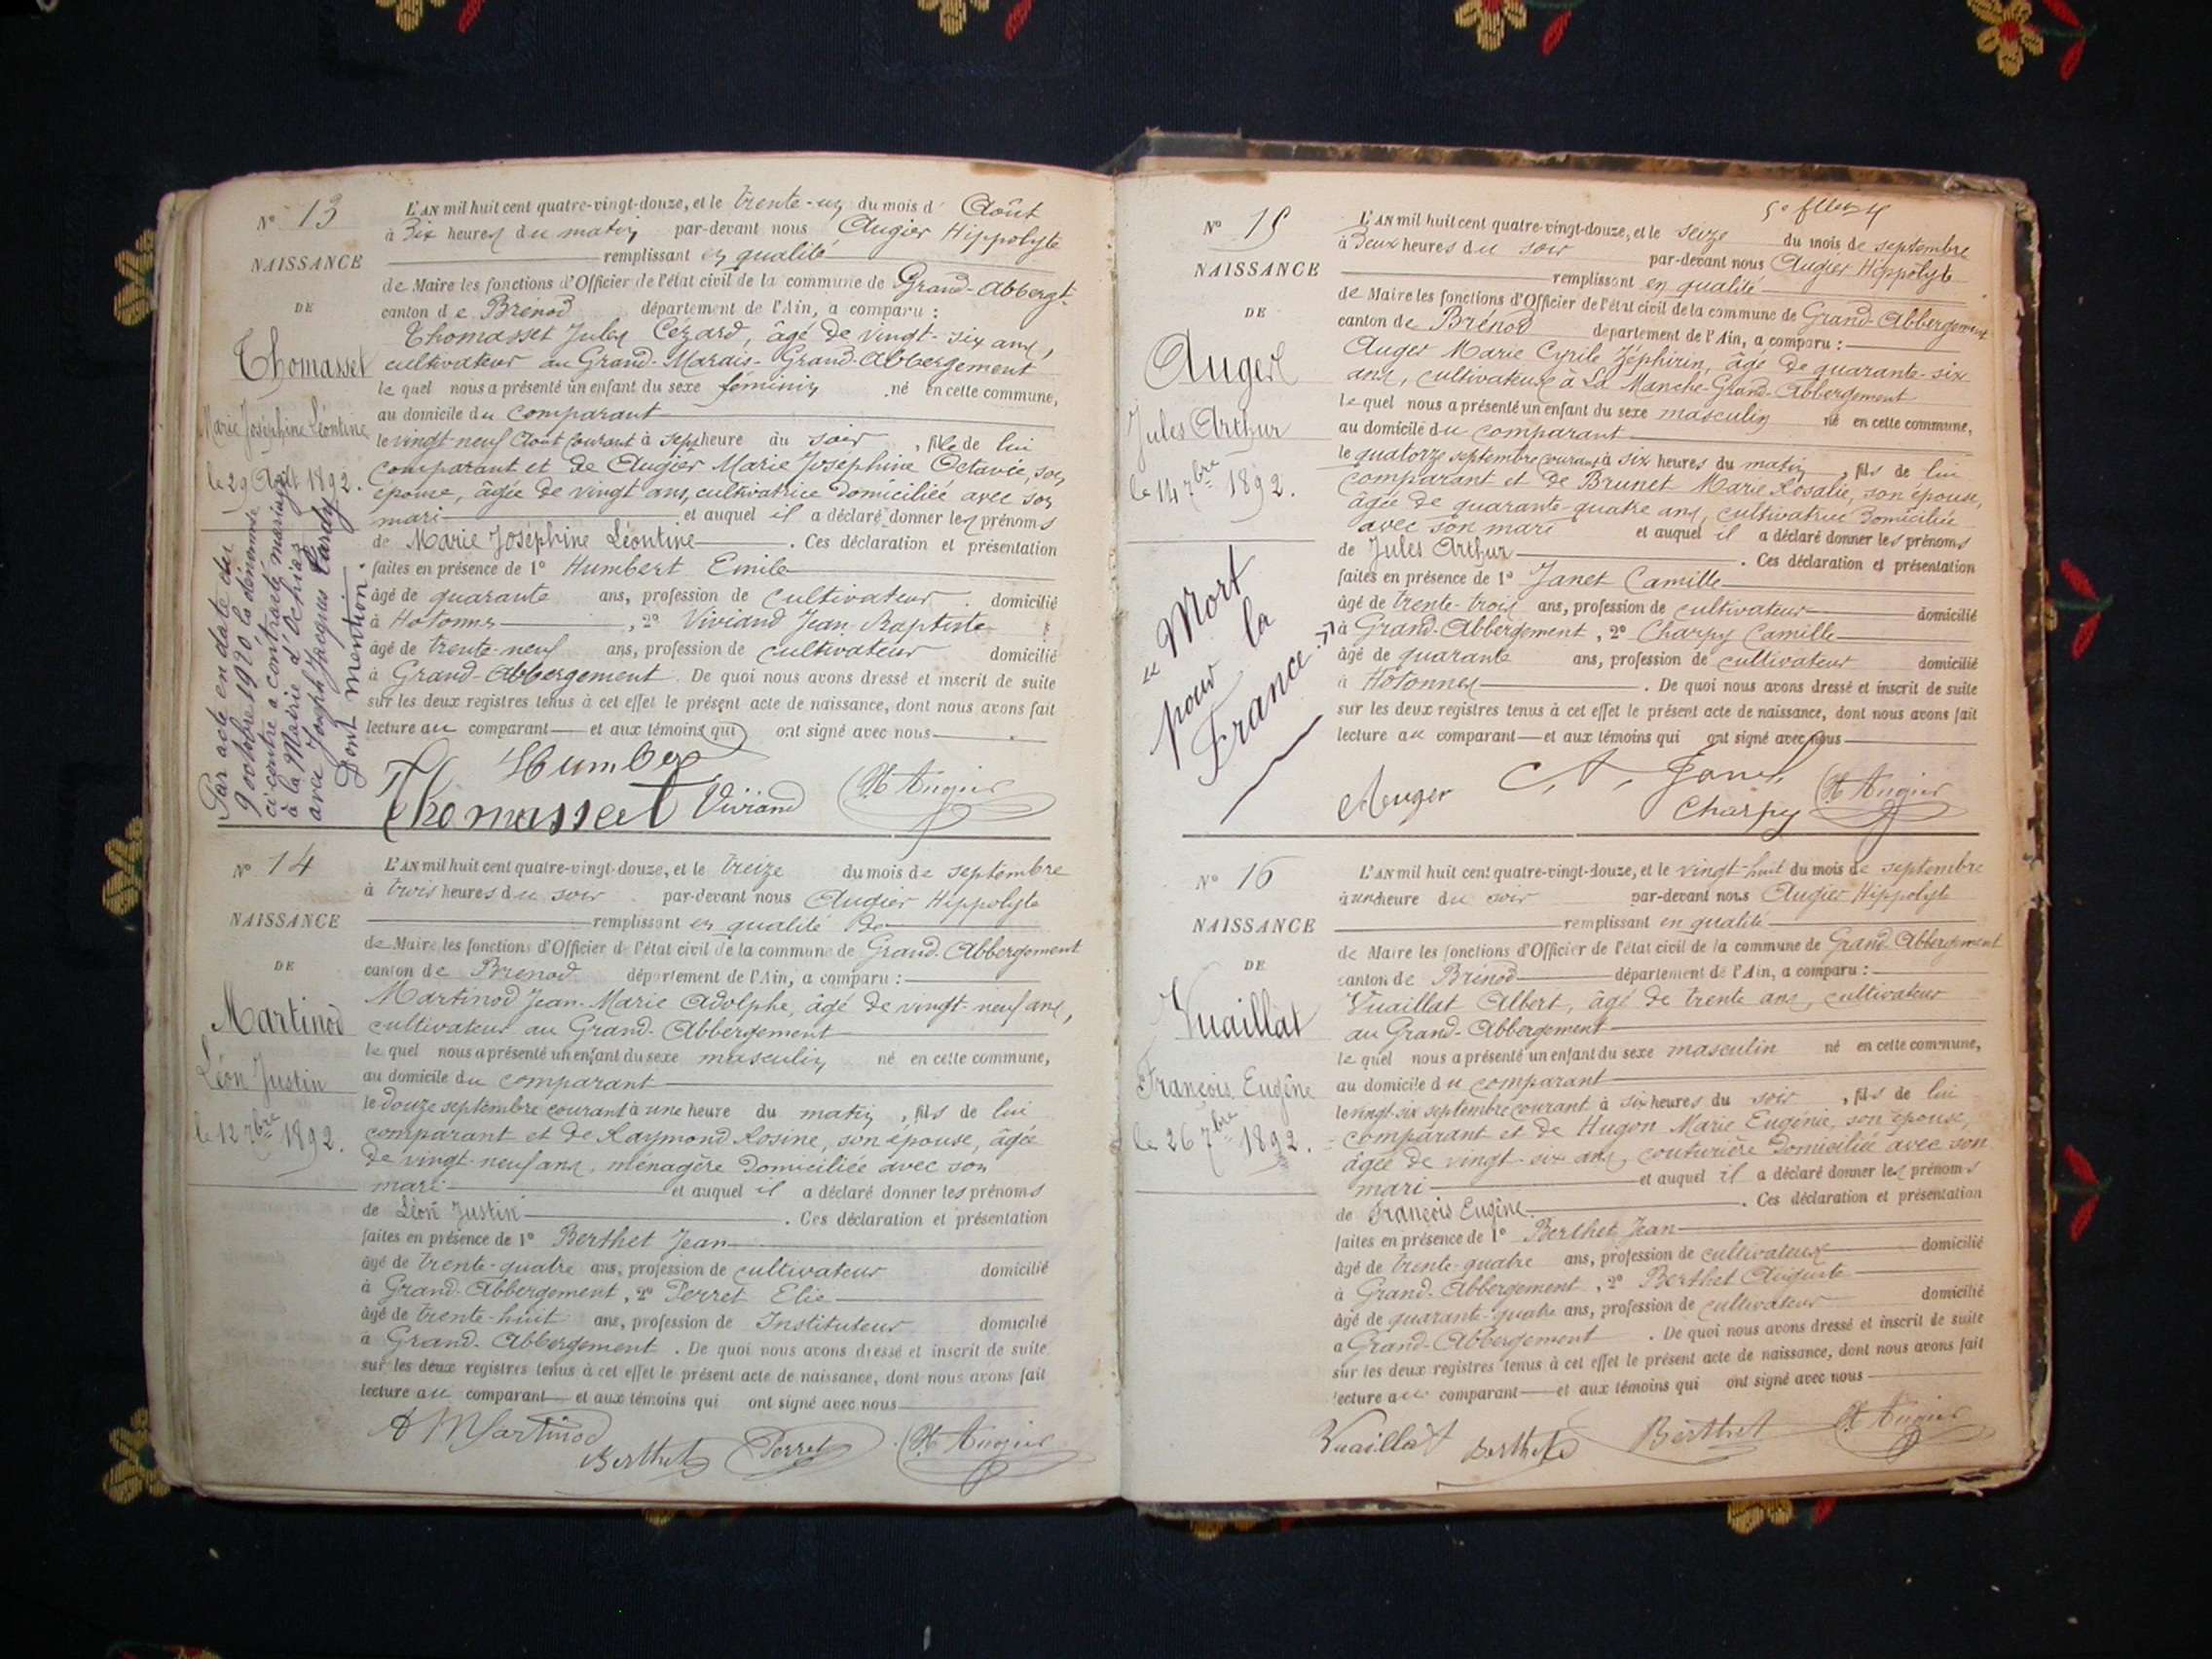 N° 13
NAISSANCE
DE
Thomasset
Marie Joséphine Léontine
le 29 Août 1892.
Par acte en date du
9 octobre 1920 la dénommée
ci contre a contracté mariage
à la Mairie d'
avec Joseph Jacques Tardy
Dont mention.
L'AN mil huit cent quatre-vingt-douze, et le trente-un du mois d' Août
à Dix heures du matin par-devant nous Augier Hippolyte
remplissant en qualité
de Maire les fonctions d'Officier de l'état civil de la commune de Grand-Abbergt
canton de Brénod département de l'Ain, a comparu :
Thomasset Jules Cézard, âgé de vingt-six ans,
cultivateur au Grand-Marais-Grand-Abbergement
le quel nous a présenté un enfant du sexe féminin né en cette commune,
au domicile du comparant
le vingt-neuf Août courant à sept heure du soir, fille de lui
comparant et de Augier Marie Joséphine Octavie, son
épouse, âgée de vingt ans, cultivatrice domiciliée avec son
mari et auquel il a déclaré donner les prénoms
de Marie Joséphine Léontine. Ces déclaration et présentation
faites en présence de 1° Humbert Emile
âgé de quarante ans, profession de cultivateur domicilié
à Hotonnes, 2° Viviand Jean Baptiste
âgé de trente-neuf ans, profession de cultivateur domicilié
à Grand-Abbergement. De quoi nous avons dressé et inscrit de suite
sur les deux registres tenus à cet effet le présent acte de naissance, dont nous avons fait
lecture au comparant et aux témoins qui ont signé avec nous
Humbert
Thomasset Viviand H. Augier
N° 14
NAISSANCE
DE
Martinod
Léon Justin
le 12 7bre 1892.
L'AN mil huit cent quatre-vingt-douze, et le treize du mois de septembre
à trois heures du soir par-devant nous Augier Hippolyte
remplissant en qualité de
de Maire les fonctions d'Officier de l'état civil de la commune de Grand-Abbergement
canton de Brénod département de l'Ain, a comparu :
Martinod Jean-Marie Adolphe, âgé de vingt-neuf ans,
cultivateur au Grand-Abbergement
le quel nous a présenté un enfant du sexe masculin né en cette commune,
au domicile du comparant
le douze septembre courant à une heure du matin, fils de lui
comparant et de Raymond Rosine, son épouse, âgée
de vingt-neuf ans, ménagère domiciliée avec son
mari et auquel il a déclaré donner les prénoms
de Léon Justin. Ces déclaration et présentation
faites en présence de 1° Berthet Jean
âgé de trente-quatre ans, profession de cultivateur domicilié
à Grand-Abbergement, 2° Perret Elie
âgé de trente-huit ans, profession de Instituteur domicilié
à Grand-Abbergement. De quoi nous avons dressé et inscrit de suite
sur les deux registres tenus à cet effet le présent acte de naissance, dont nous avons fait
lecture au comparant et aux témoins qui ont signé avec nous
A Martinod
Berthet Perret H. Augier
N° 15
NAISSANCE
DE
Auger
Jules Arthur
le 14 7bre 1892.
« Mort
pour la
France »
L'AN mil huit cent quatre-vingt-douze, et le seize du mois de septembre
à Deux heures du soir par-devant nous Augier Hippolyte
remplissant en qualité
de Maire les fonctions d'Officier de l'état civil de la commune de Grand-Abbergement
canton de Brénod département de l'Ain, a comparu :
Auger Marie Cyrile Zéphirin, âgé de quarante-six
ans, cultivateur à La Manche-Grand-Abbergement
le quel nous a présenté un enfant du sexe masculin né en cette commune,
au domicile du comparant
le quatorze septembre courant à six heures du matin, fils de lui
comparant et de Brunet Marie Rosalie, son épouse,
âgée de quarante-quatre ans, cultivatrice domiciliée
avec son mari et auquel il a déclaré donner les prénoms
de Jules Arthur. Ces déclaration et présentation
faites en présence de 1° Janet Camille
âgé de trente-trois ans, profession de cultivateur domicilié
à Grand-Abbergement, 2° Charpy Camille
âgé de quarante ans, profession de cultivateur domicilié
à Hotonnes. De quoi nous avons dressé et inscrit de suite
sur les deux registres tenus à cet effet le présent acte de naissance, dont nous avons fait
lecture au comparant et aux témoins qui ont signé avec nous
Auger Janet
Charpy H. Augier
N° 16
NAISSANCE
DE
Vuaillat
François Eugène
le 26 7bre 1892.
L'AN mil huit cent quatre-vingt-douze, et le vingt-huit du mois de septembre
à une heure du soir par-devant nous Augier Hippolyte
remplissant en qualité
de Maire les fonctions d'Officier de l'état civil de la commune de Grand-Abbergement
canton de Brénod département de l'Ain, a comparu :
Vuaillat Albert, âgé de trente ans, cultivateur
au Grand-Abbergement
le quel nous a présenté un enfant du sexe masculin né en cette commune,
au domicile du comparant
le vingt-six septembre courant à six heures du soir, fils de lui
comparant et de Hugon Marie Eugénie, son épouse,
âgée de vingt-six ans, couturière domiciliée avec son
mari et auquel il a déclaré donner les prénoms
de François Eugène. Ces déclaration et présentation
faites en présence de 1° Berthet Jean
âgé de trente-quatre ans, profession de cultivateur domicilié
à Grand-Abbergement, 2° Berthet Auguste
âgé de quarante-quatre ans, profession de cultivateur domicilié
à Grand-Abbergement. De quoi nous avons dressé et inscrit de suite
sur les deux registres tenus à cet effet le présent acte de naissance, dont nous avons fait
lecture au comparant et aux témoins qui ont signé avec nous
Vuaillat Berthet Berthet H. Augier